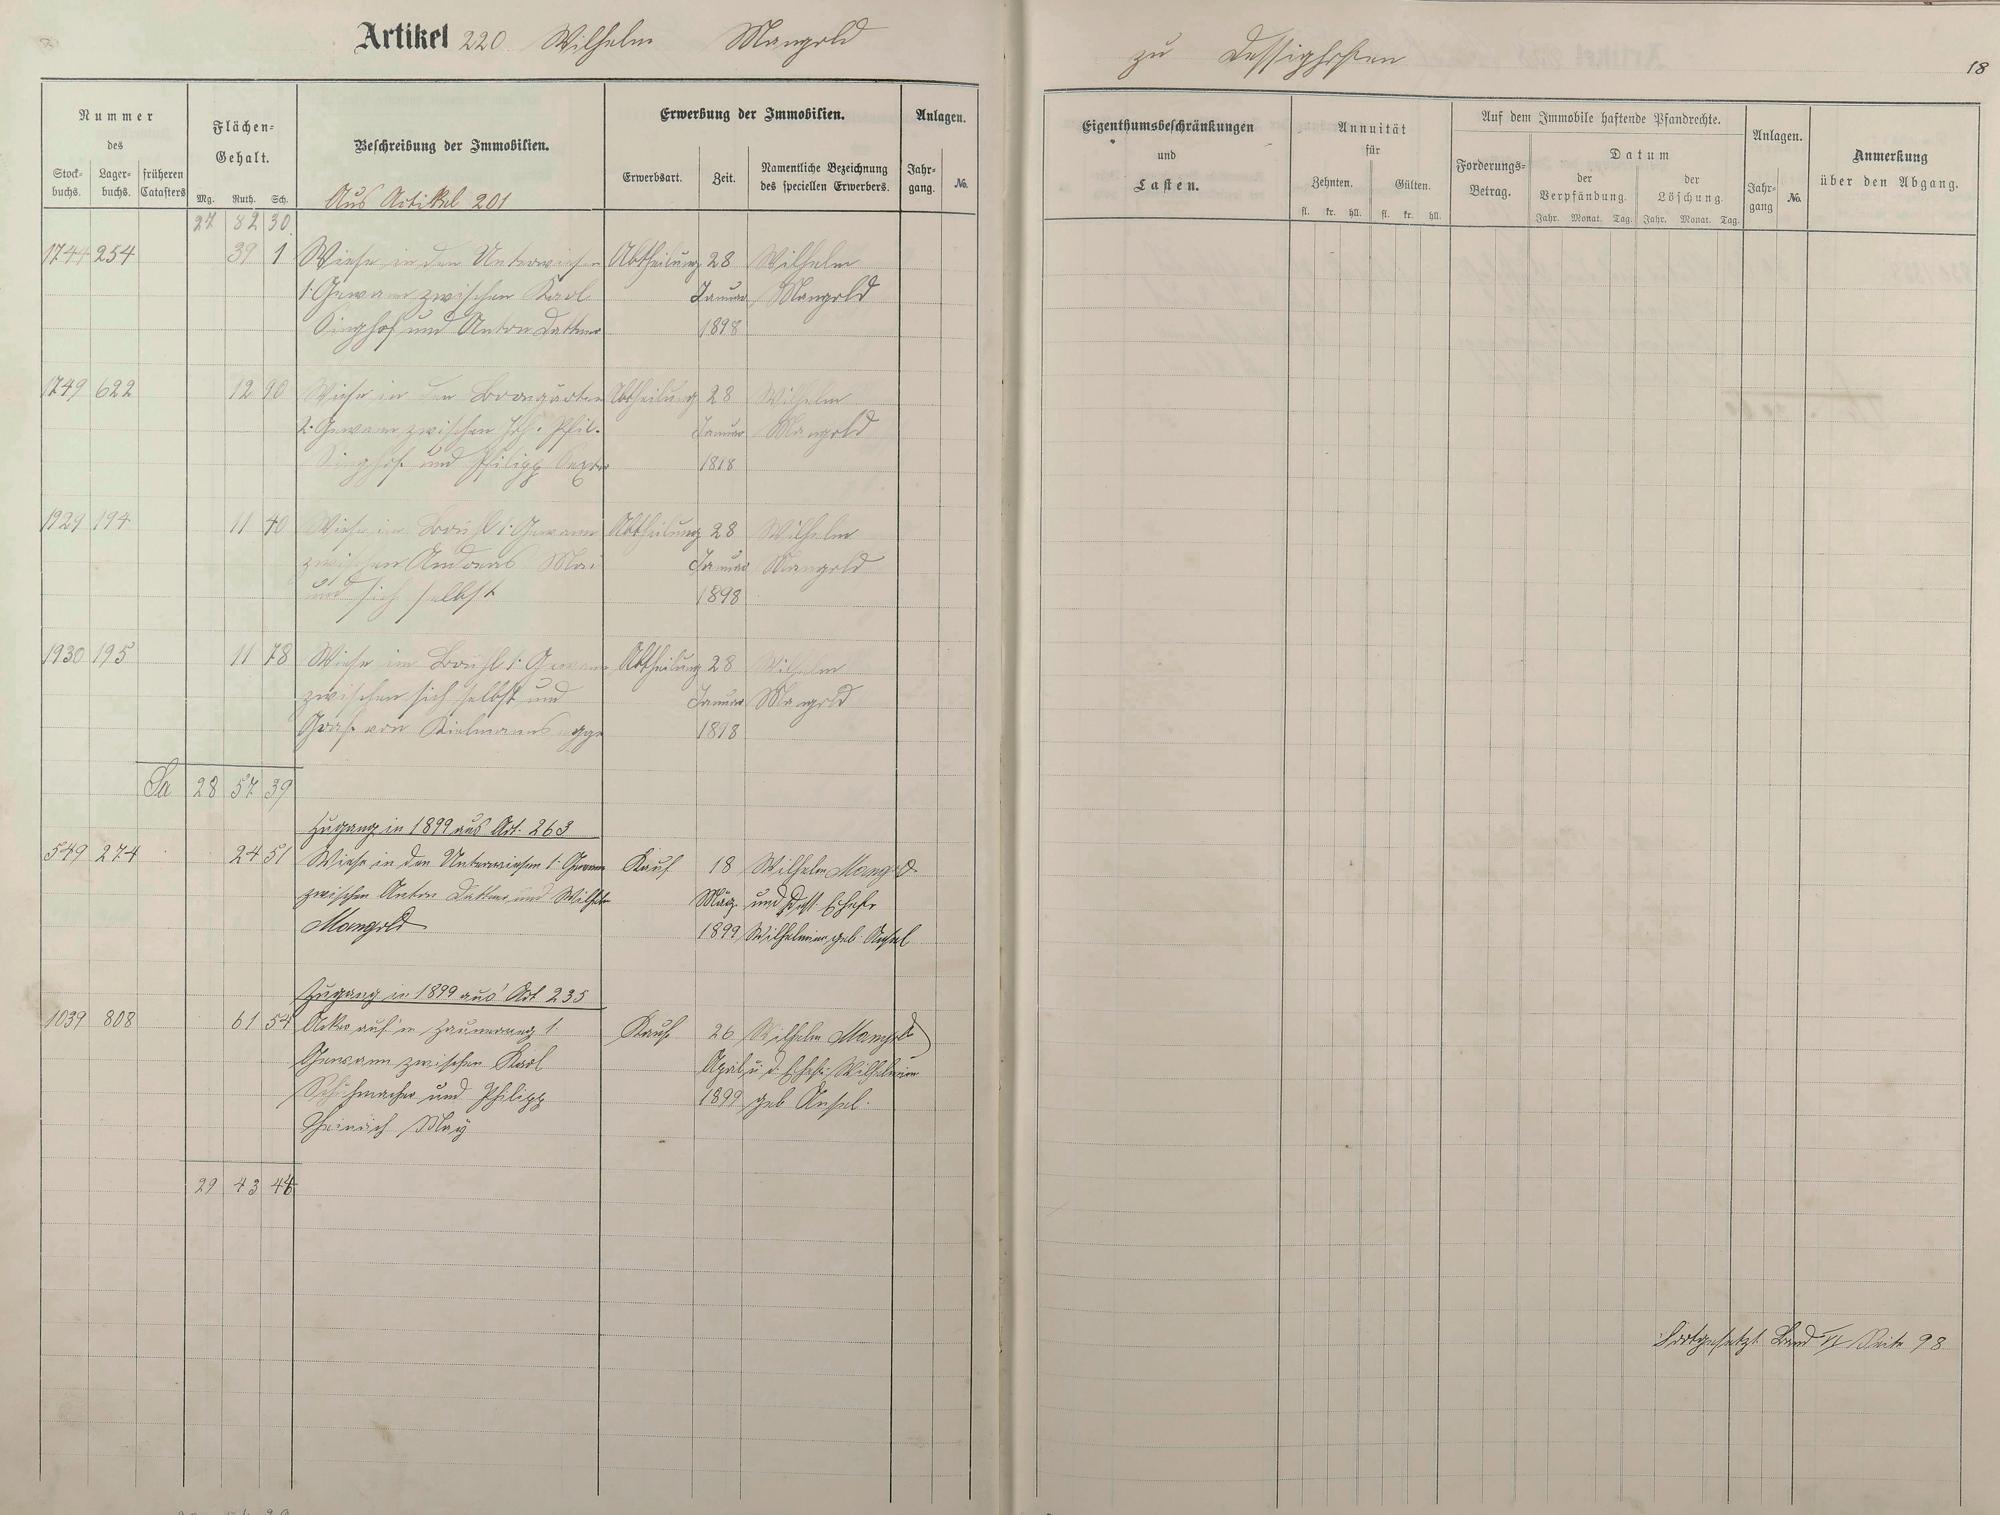 Artikel 220. Wilhelm Mangold
zu Dessighofen
18
Nummer
des
Stock-
buchs.
Lager-
buchs.
früheren
Catasters
Flächen-
Gehalt.
Mg. Ruth. Sch.
Beschreibung der Immobilien.
Aus Artikel 201
Erwerbung der Immobilien.
Erwerbsart.
Zeit.
Namentliche Bezeichnung
des speciellen Erwerbers.
Anlagen.
Jahr-
gang.
No.
Eigenthumsbeschränkungen
und
Lasten.
Annuität
für
Zehnten. Gülten.
fl. kr. hll. fl. kr. hll.
Auf dem Immobile haftende Pfandrechte.
Forderungs-
Betrag.
Datum
der
Verpfändung.
Jahr. Monat. Tag.
der
Löschung.
Jahr. Monat. Tag.
Anlagen.
Jahr-
gang
No.
Anmerkung
über den Abgang.
27 82 30
1744 254 39 1 Wiese in den Unterwiesen Abtheilung 28 Wilhelm
1. Gewann zwischen Karl Januar Mangold
Singhof und Anton Dattner 1898
1749 622 12 90 Wiese in den Baumgärten Abtheilung 28 Wilhelm
2. Gewann zwischen Joh. Phil. Januar Mangold
Singhof und Philipp 1898
1929 194 11 40 Wiese im Brühl 1. Gewann Abtheilung 28 Wilhelm
zwischen Andreas Mai Januar Mangold
und sich selbst 1898
1930 195 11 78 Wiese im Brühl 1. Gewann Abtheilung 28 Wilhelm
zwischen sich selbst und Januar Mangold
Graf von Kielmannsegge 1898
Sa 28 57 39
Zugang in 1899 aus Art. 263
549 274 24 51 Wiese in den Unterwiesen 1. Gewann Kauf 18 Wilhelm Mangold
zwischen Anton Dattner und Wilhelm März und dess. Ehefr
Mangold 1899 Wilhelmine geb. Ansel
Zugang in 1899 aus Art 235
1039 808 61 54 Acker auf'm Zaunweg 1 Kauf 26 Wilhelm Mangold
Gewann zwischen Karl April u. d. Ehefr. Wilhelmine
Schuhmacher und Philipp 1899 geb Ansel.
Heinrich May
29 43 44
Fortgesetzt Band VI Seite 98